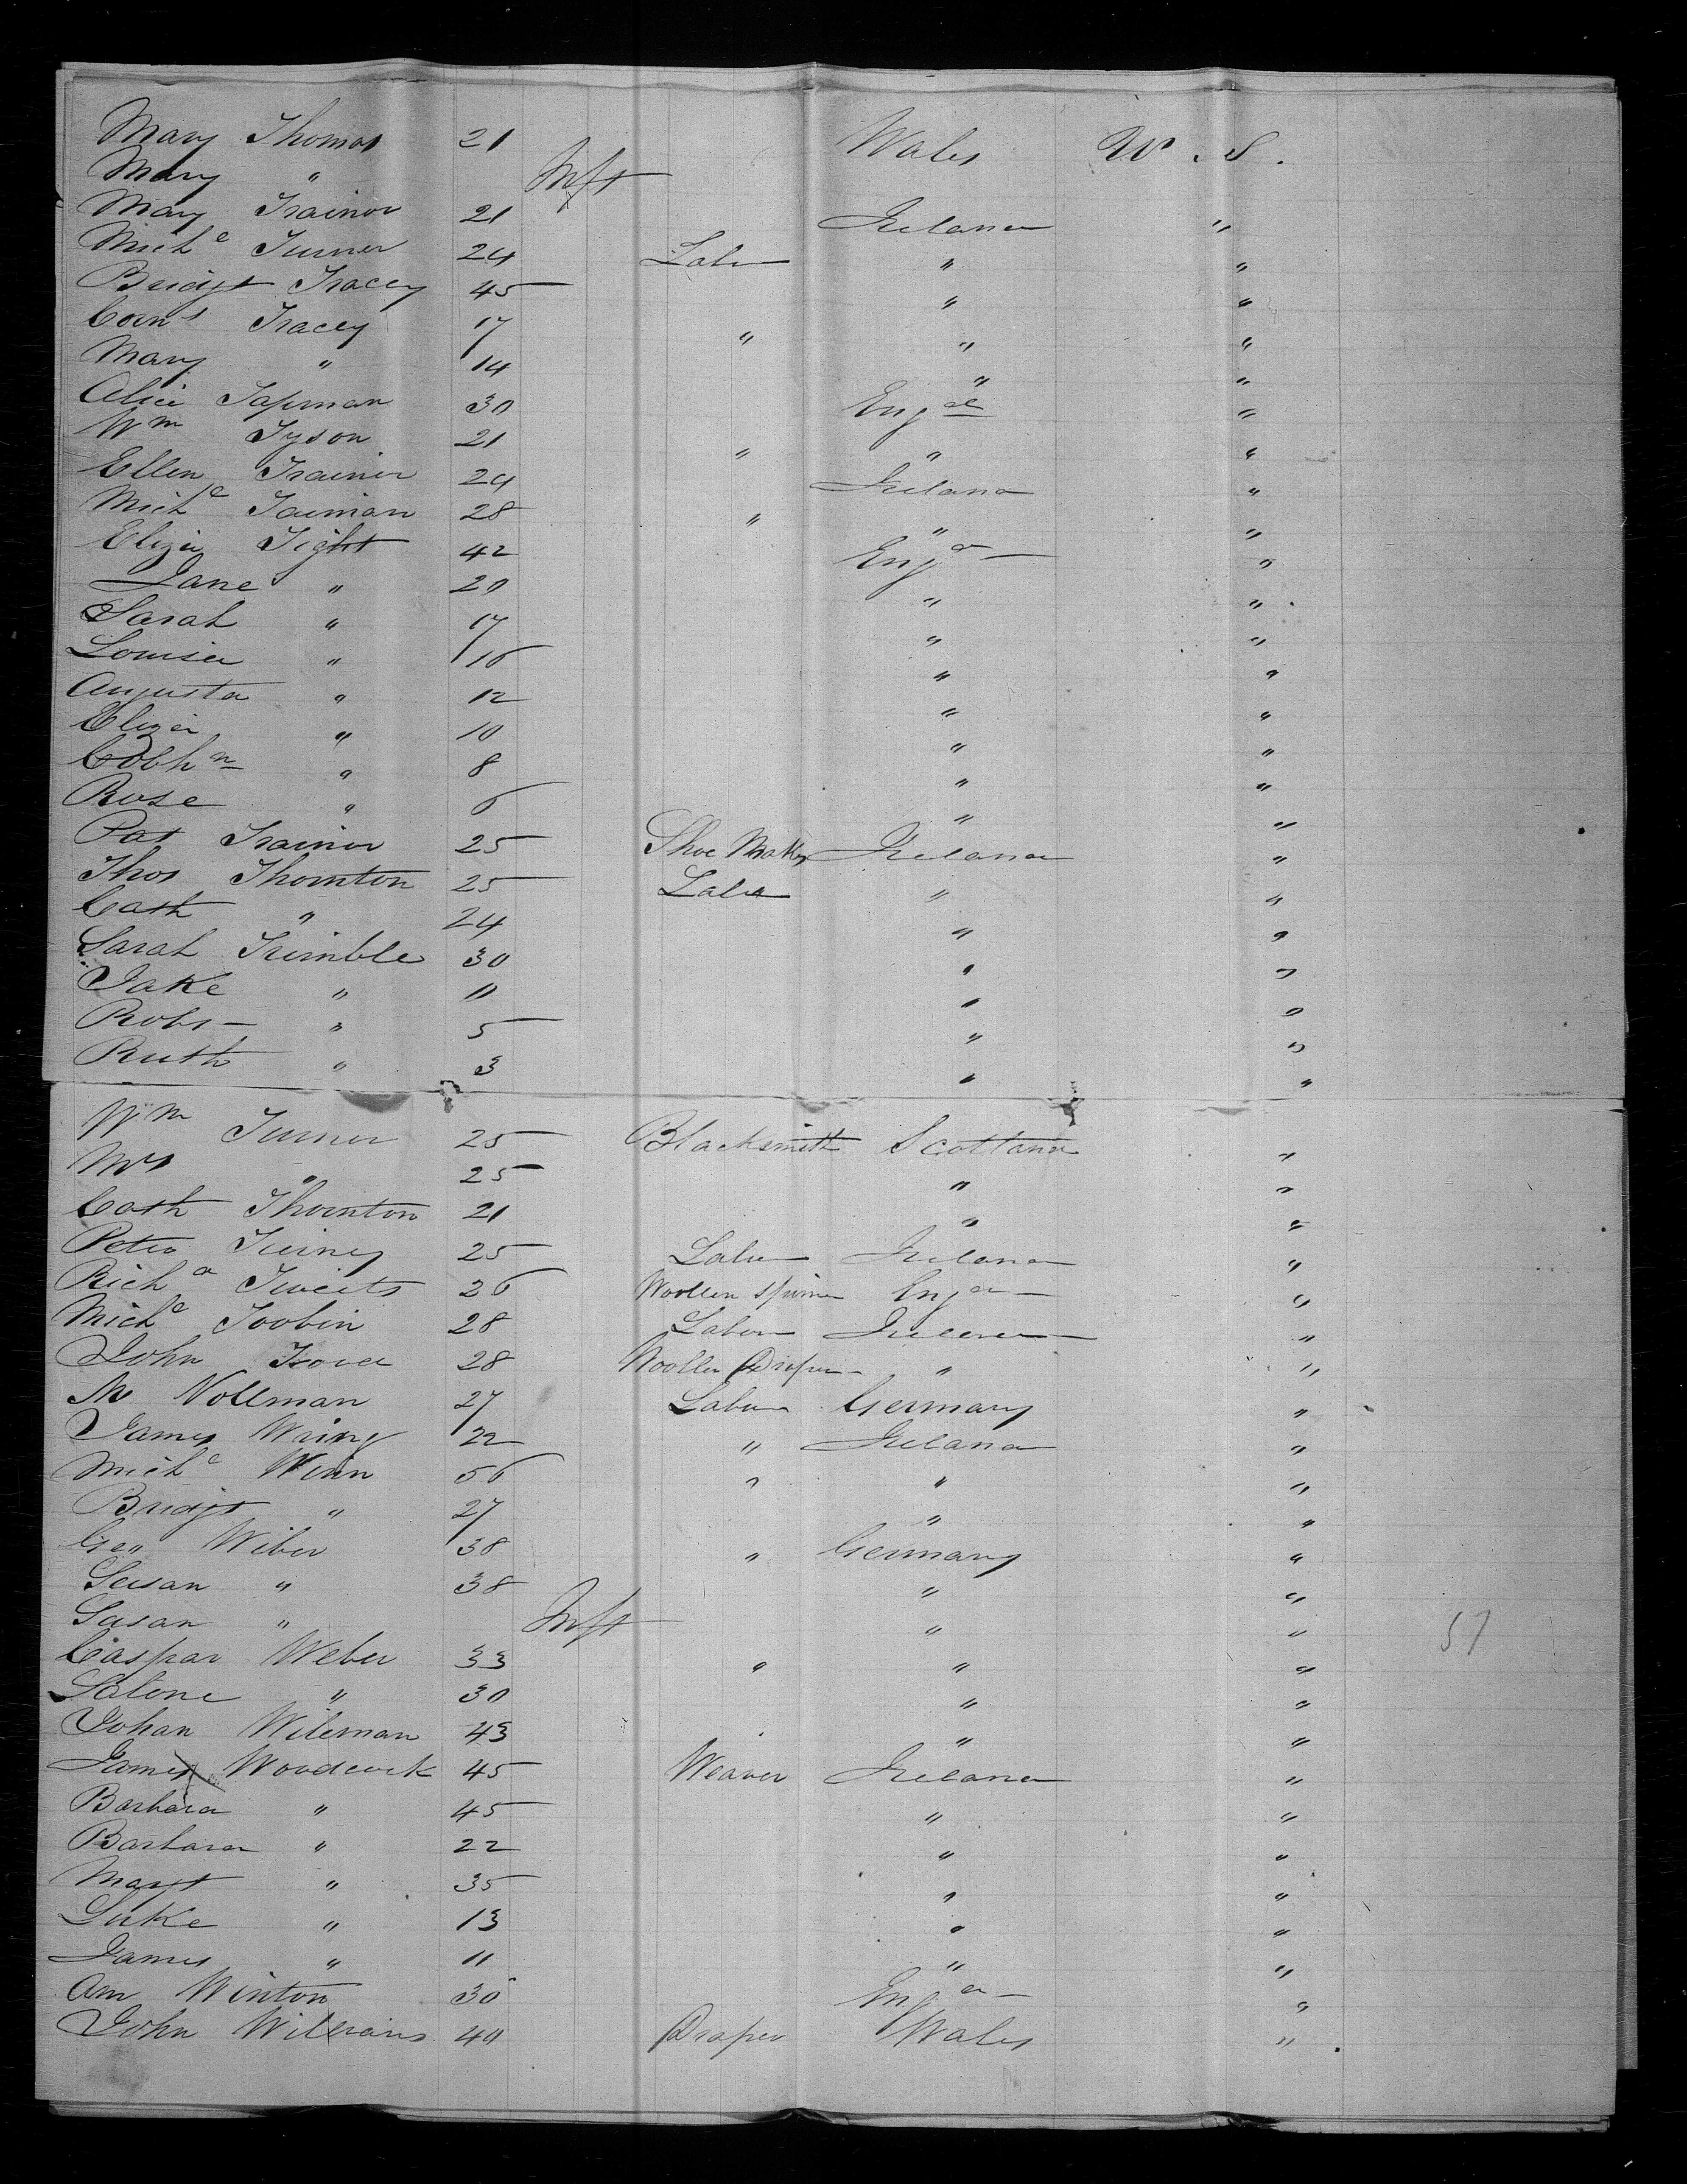 Mary Thomas 21 Wales U. S.
Mary " Inft
Mary Trainor 21 Ireland "
Michl Turner 24 Labr " "
Bridgt Tracey 45 " "
Corns Tracey 17 " " "
Mary " 14 " "
Alice Tapman 30 Engd "
Wm Tyson 21 " " "
Ellen Trainer 24 Ireland "
Michl Taiman 28 " " "
Eliza Tight 42 Engd "
Jane " 20 " "
Sarah " 17 " "
Louisa " 16 " "
Augusta " 12 " "
Eliza " 10 " "
" 8 " "
Rose " 6 " "
Pat Trainor 25 Shoe Maker Ireland "
Thos Thornton 25 Labr " "
Cath " 24 " "
Sarah Trimble 30 " "
Jake " 11 " "
Robt " 5 " "
Ruth " 3 " "
Wm Turner 25 Blacksmith Scotland "
Mrs " 25 " "
Cath Thornton 21 " "
Peter 25 Labr Ireland "
Richd 26 Woollen Spinner Engd "
Michl Toobin 28 Labor Ireland "
John 28 Woollen Draper " "
M Vollman 27 Labor Germany "
James Waing 22 " Ireland "
Michl Winn 56 " " "
Bridgt " 27 " "
Geo Wiber 38 " Germany "
Susan " 38 " "
Susan " Inft " "
Caspar Weber 33 " " "
Salone " 30 " "
Johan Wileman 43 " "
James Woodcock 45 Weaver Ireland "
Barbara " 45 " "
Barbara " 22 " "
Margt " 35 " "
Luke " 13 " "
James " 11 " "
Ann Winton 30 Engd "
John Williams 40 Draper Wales "
57